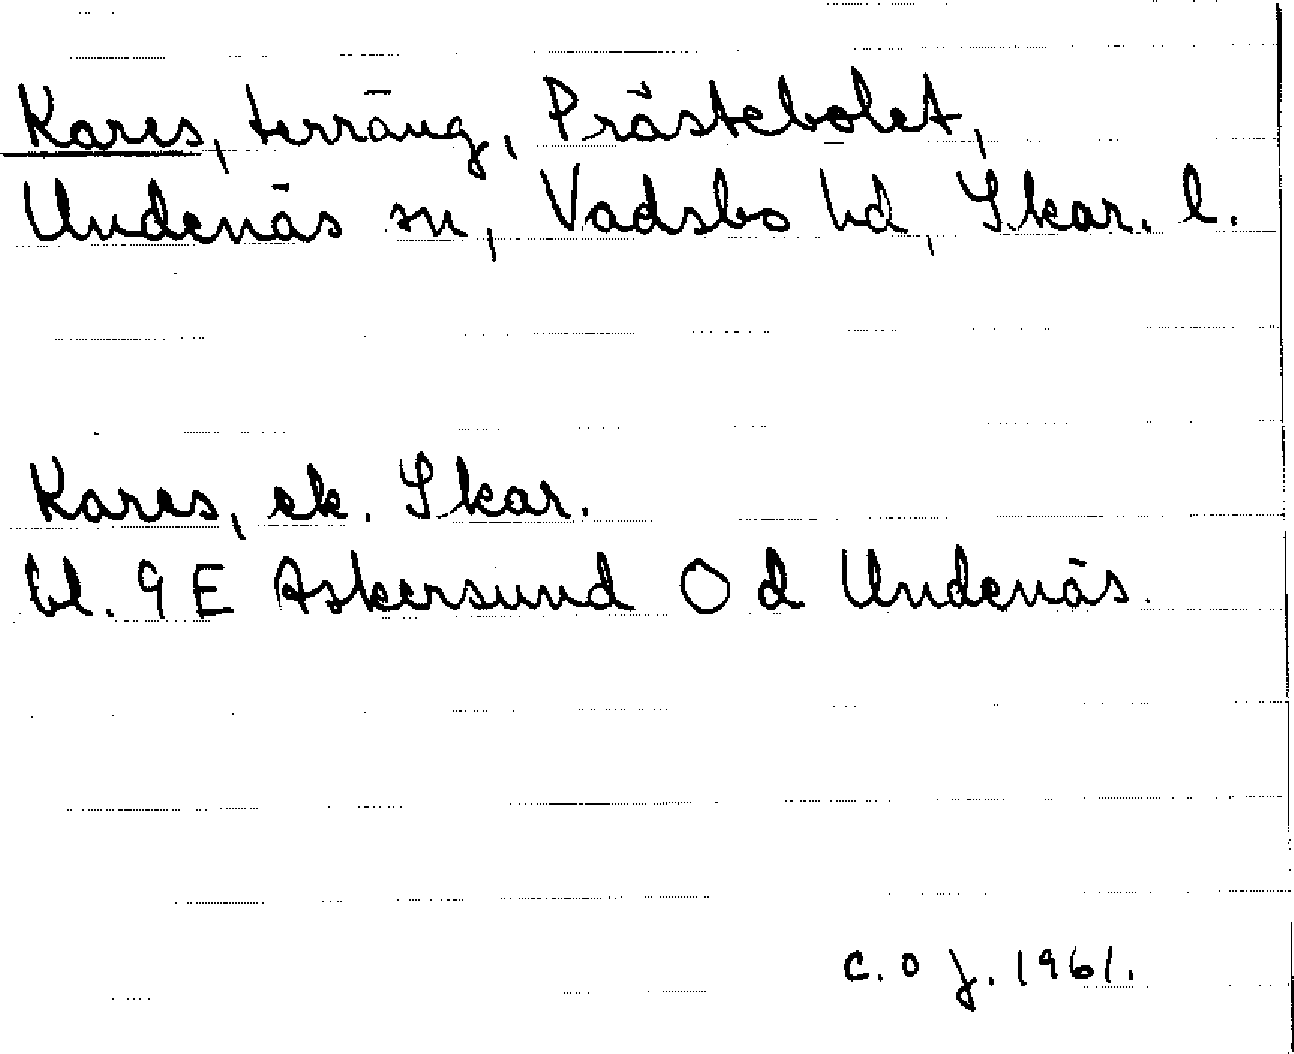 Kares, terräng, Prästebolet,
Undenäs sn, Vadsbo hd, Skar. l.
Kares, ek. Skar.
bl. 9 E Askersund O d Undenäs.
C. O J. 1961.